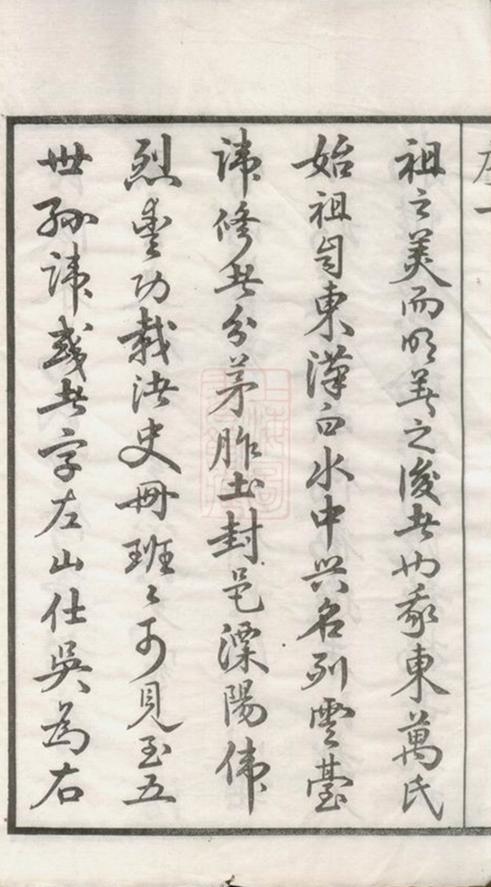 序一
祖之美而明著之後者也我東萬氏
始祖自東漢白水中兴名列雲臺
諱修者分茅胙土封邑溧陽偉
烈豊功載諸史冊班々可見至五
世孫諱彧者字左山仕吳為右